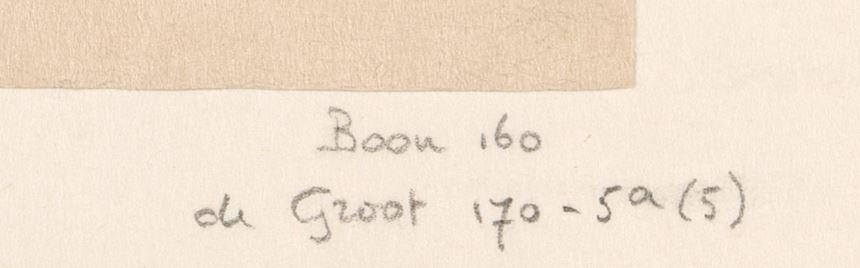 Boon 160
de Groot 170 - 5a (5)